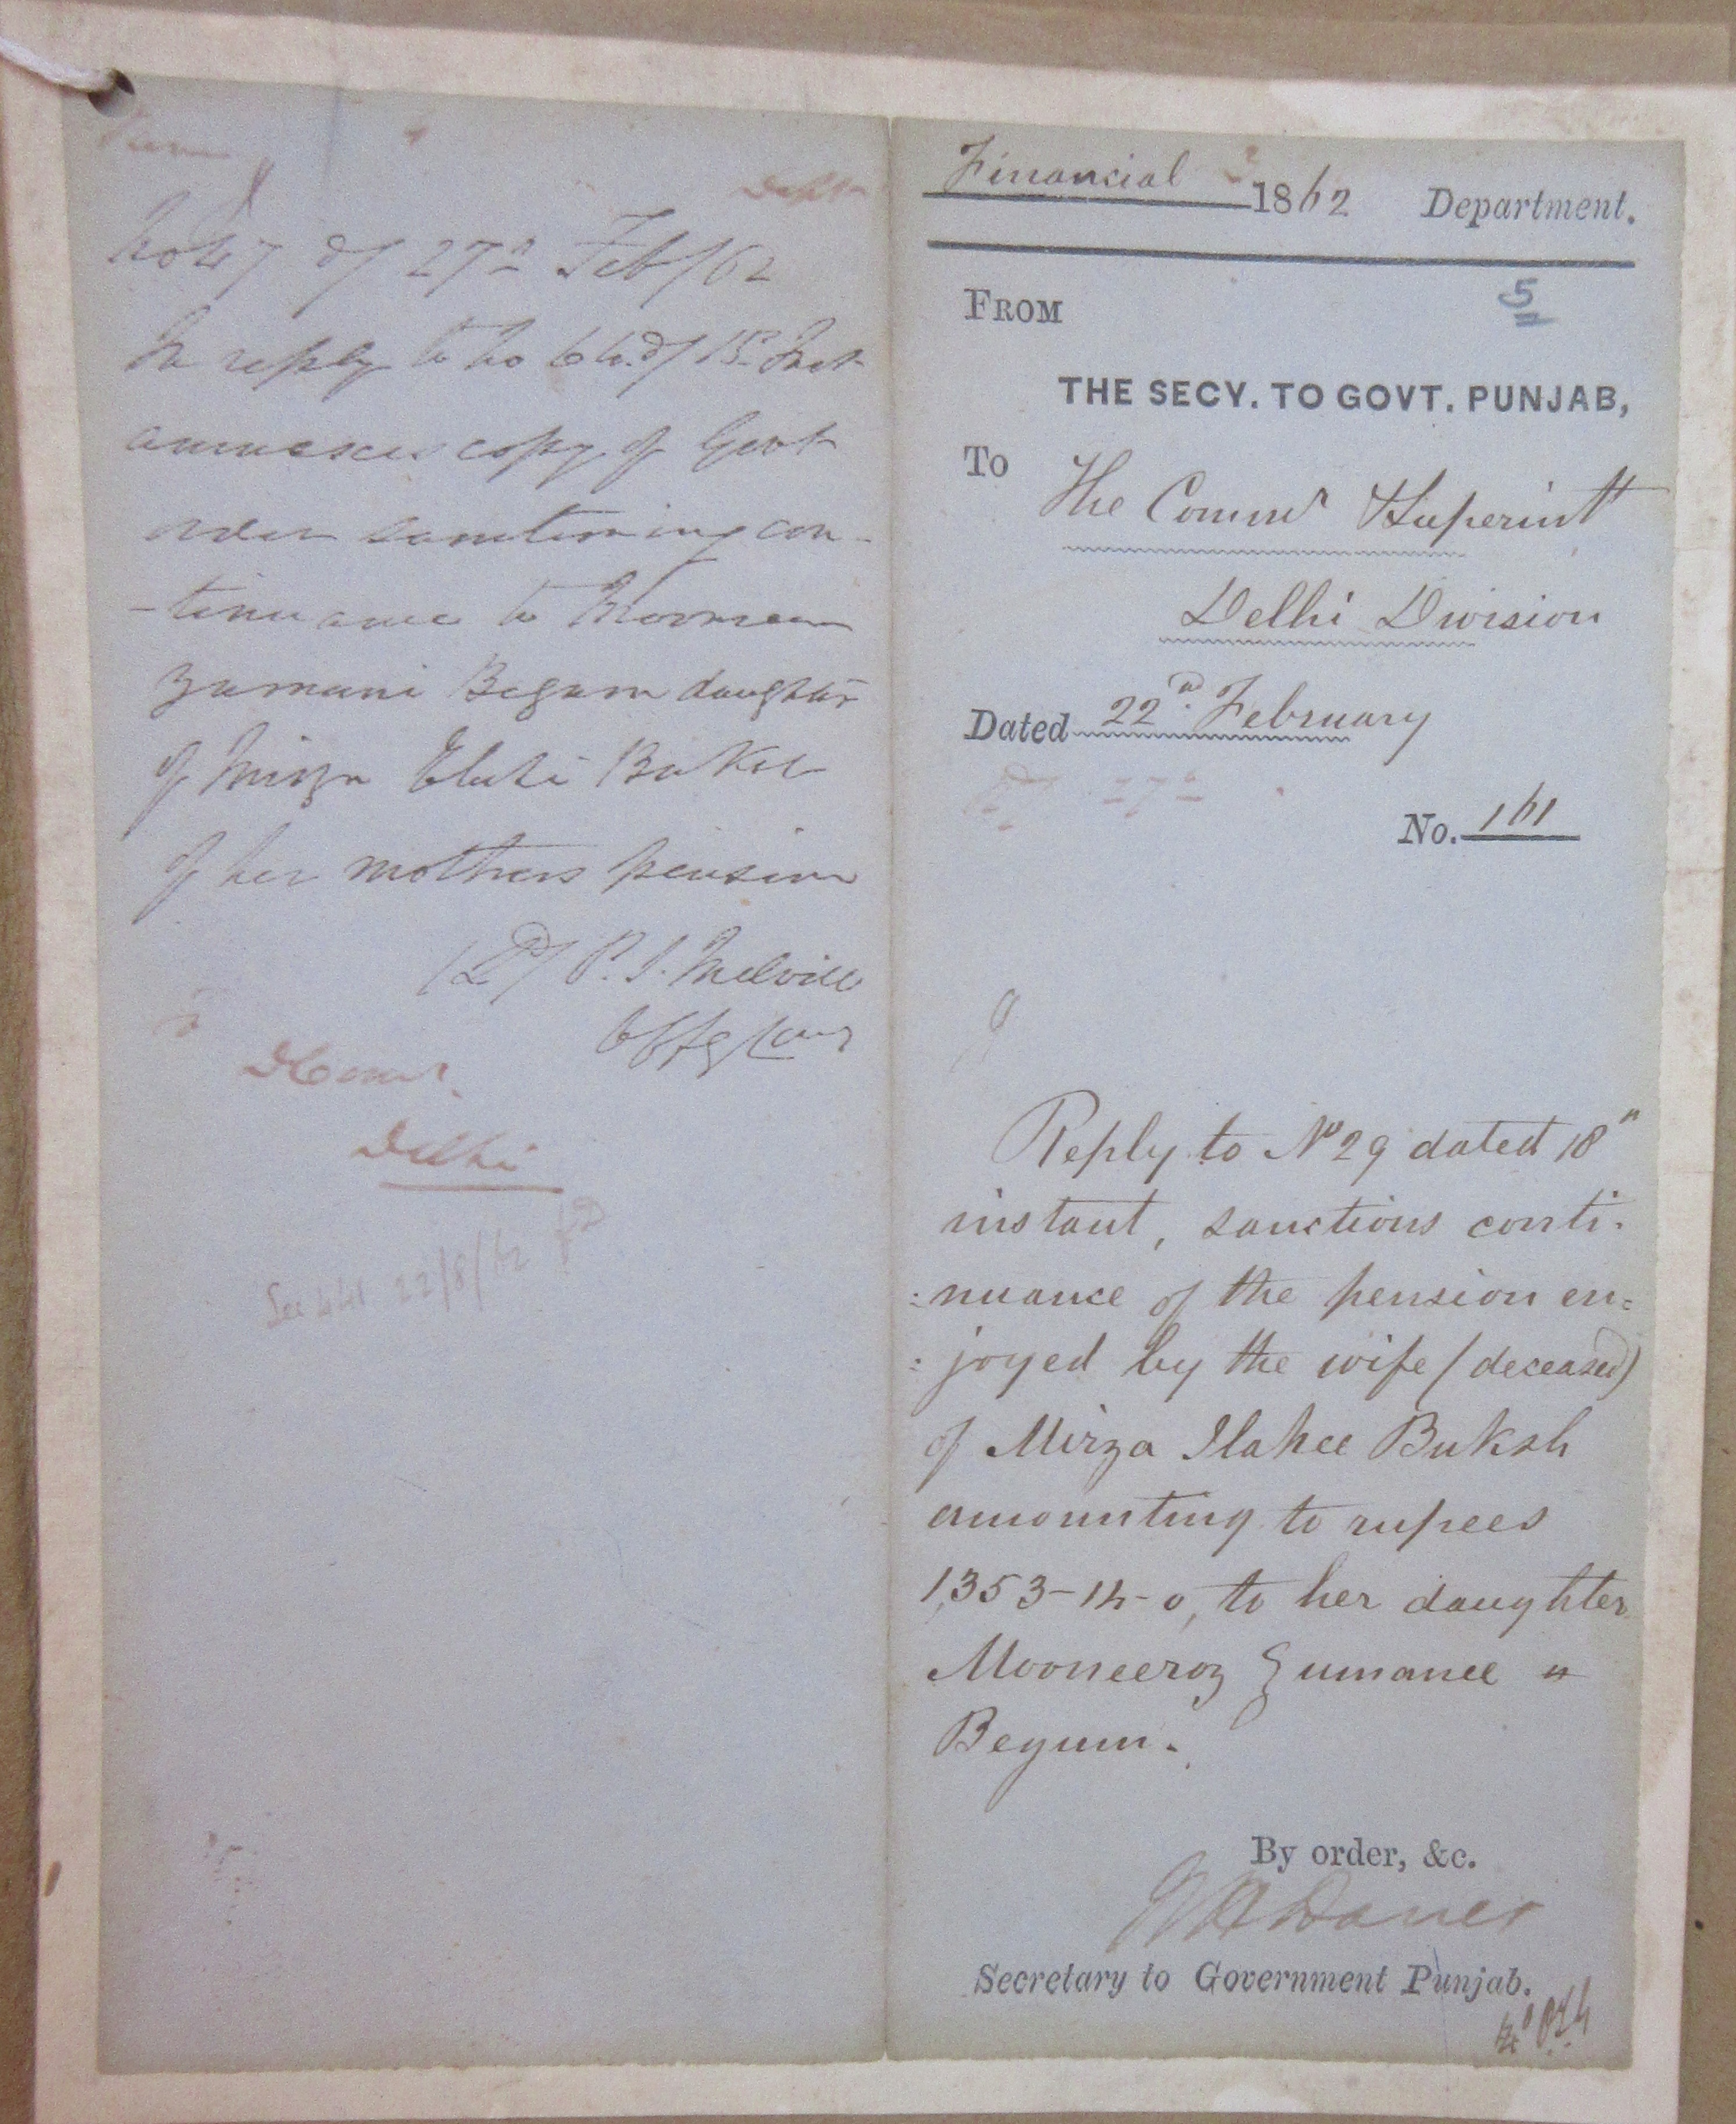 Dept
No 47 of 27th Feb/62
In reply to No 64 of 15th Inst
annexes copy of Govt
order sanctioning con-
-tinuance to
Zamani Begam daughter
of Mirza Elahi Buksh
of her mothers pension
(Sd/ P. S. Melvill
Offg Comr
D Comr.
Delhi
See 441 22/8/62
Financial 1862 Department.
5
FROM
THE SECY. TO GOVT. PUNJAB,
To The Commr & Superintt
Delhi Division
Dated 22nd February
27th
No. 161
Reply to No 29 dated 18"
instant, sanctions conti-
:nuance of the pension en=
:joyed by the wife (deceased)
of Mirza Ilahee Buksh
amounting to rupees
1,353-14-0, to her daughter
Mooneeroz Zumanee "
Begum.
By order, &c.
R H Davies
Secretary to Government Punjab.